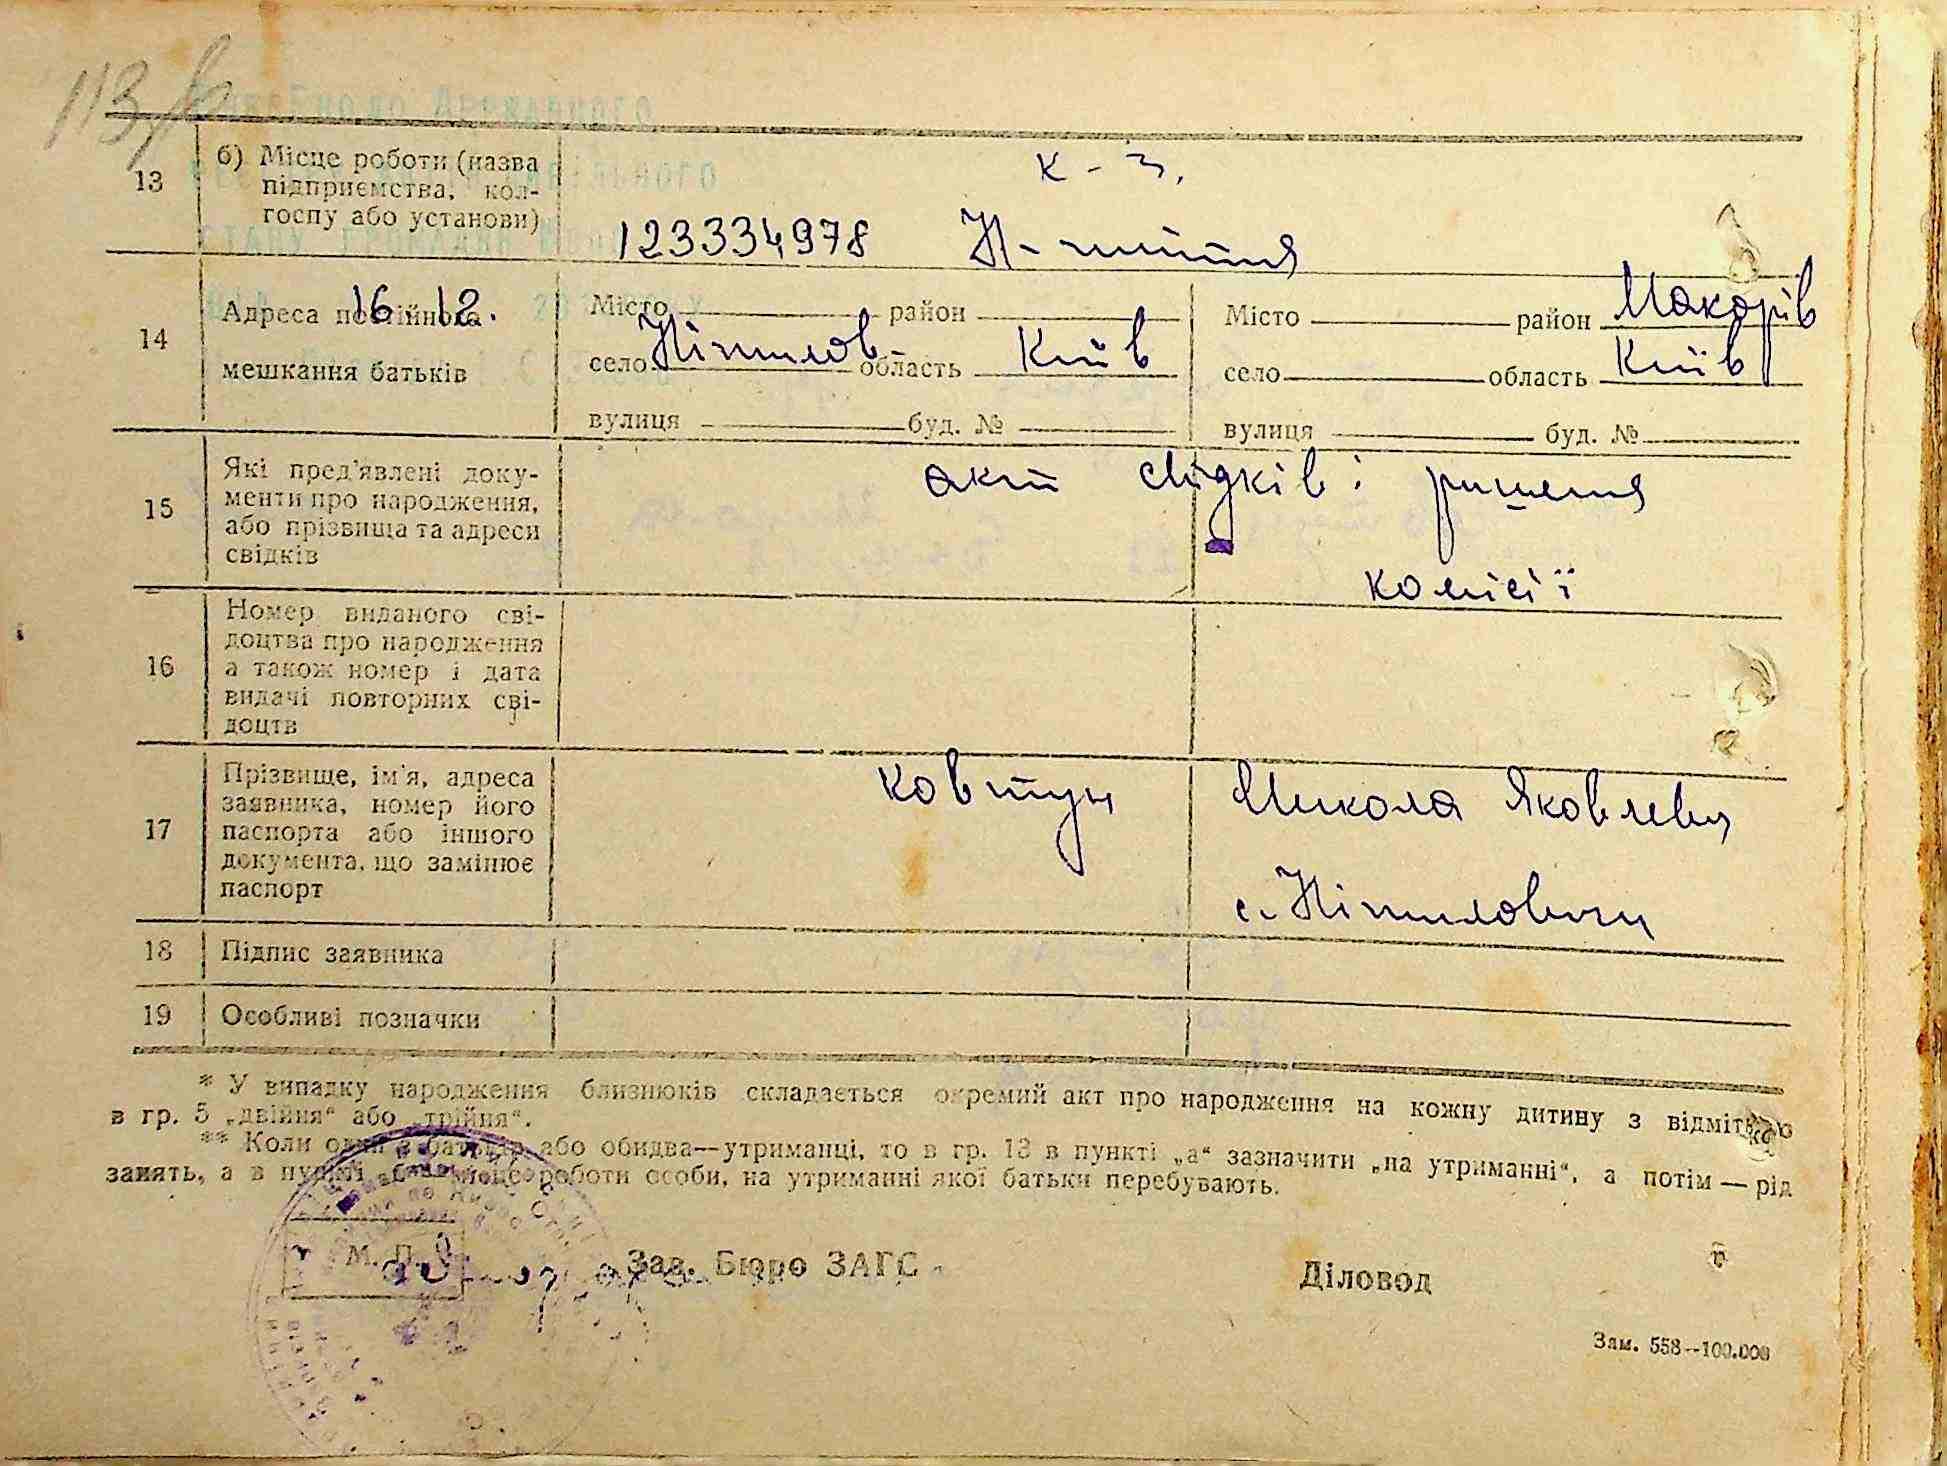 113
13 б) Місце роботи (назва підприємства, колгоспу або установи)
к-з.
123334978
14 Адреса постійного мешкання батьків
16 12.
Місто район
село Ніжилов. область Київ
вулиця буд. №
Місто район Макорів
село область Київ
вулиця буд. №
15 Які пред'явлені доку-
менти про народження,
або прізвища та адреси
свідків
акт свідків і рішення
комісії
16 Номер виданого сві-
доцтва про народження
а також номер і дата
видачі повторних сві-
доцтв
17 Прізвище, ім'я, адреса
заявника, номер його
паспорта або іншого
документа, що замінює
паспорт
Ковтун Микола Яковлевич
с. Ніжиловичи
18 Підпис заявника
19 Особливі позначки
* У випадку народження близнюків складається окремий акт про народження на кожну дитину з відміткою
в гр. 5 „двійня“ або „трійня“.
** Коли один з батьків або обидва—утриманці, то в гр. 13 в пункті „а“ зазначити „на утриманні“, а потім — рід
занять, а в пункті „б“ місце роботи особи, на утриманні якої батьки перебувають.
М. П.
Зав. Бюро ЗАГС
Діловод
Зам. 558--100.000